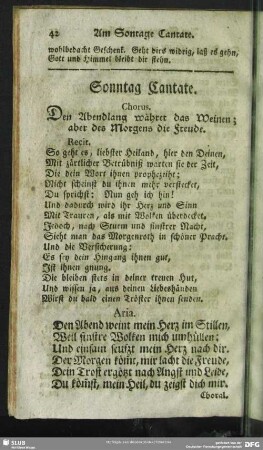 42 Am Sontage Cantate.
wohlbedacht Geschenk. Geht dirs widrig, laß es gehn,
Gott und Himmel bleibt dir stehn.
Sonntag Cantate.
Chorus.
Den Abendlang währet das Weinen;
aber des Morgens die Freude.
Recit.
So geht es, liebster Heiland, hier den Deinen,
Mit zärtlicher Betrübniß warten sie der Zeit,
Die dein Wort ihnen prophezeiht:
Nicht scheinst du ihnen mehr verstecket,
Du sprichst: Nun geh ich hin!
Und dadurch wird ihr Herz und Sinn
Mit Trauren, als mit Wolken überdecket,
Jedoch, nach Sturm und finstrer Nacht,
Sieht man das Morgenroth in schöner Pracht,
Und die Versicherung:
Es sey dein Hingang ihnen gut,
Ist ihnen gnung.
Die bleiben stets in deiner treuen Hut,
Und wissen ja, aus deinen Liebeshänden
Wirst du bald einen Tröster ihnen senden.
Aria.
Den Abend weint mein Herz im Stillen,
Weil finstre Wolken mich umhüllen:
Und einsam seufzt mein Herz nach dir.
Der Morgen kömt, mir lacht die Freude,
Dein Trost ergözt nach Angst und Leide,
Du kömst, mein Heil, du zeigst dich mir.
Choral.
SLUB